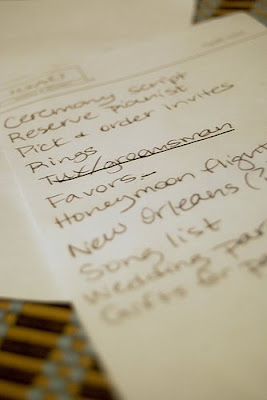 Ceremony script
Reserve Pianist
Pick & order invites
Rings
Tux/groomsman
Favors
Honeymoon flight
New Orleans (?
Song list
Wedding par
Gifts for pa